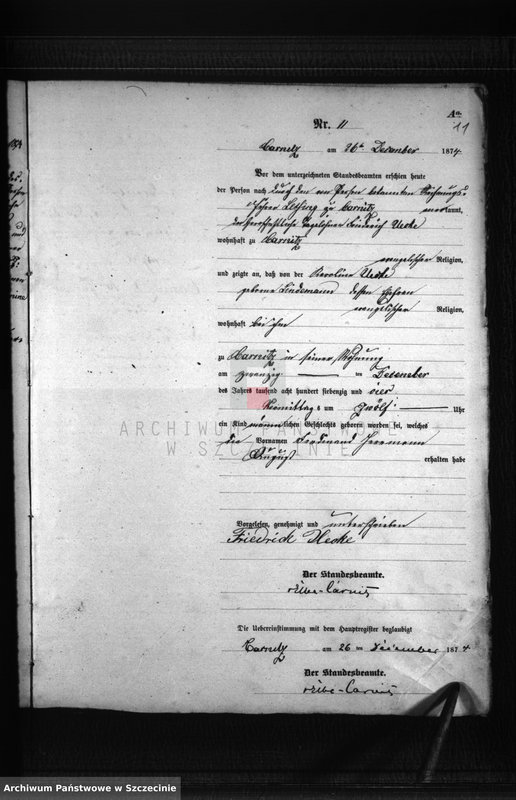 Aa.
11
Nr. 11
Carnitz am 26ten Dezember 1874.
Vor dem unterzeichneten Standesbeamten erschien heute
der Person nach durch den von Person bekannten Rechnungs-
führer zu Carnitz anerkannt,
der herrschaftliche Tagelöhner Friedrich Uecke
wohnhaft zu Carnitz
evangelischer Religion,
und zeigte an, daß von der Karoline Uecke
geborene Lindemann dessen Ehefrau
evangelischer Religion,
wohnhaft bei ihm
zu Carnitz in seiner Wohnung
am zwanzig ten Dezember
des Jahres tausend acht hundert siebenzig und vier
Vormittags um zwölf Uhr
ein Kind männlichen Geschlechts geboren worden sei, welches
die Vornamen Ferdinand Herrmann
August erhalten habe
Vorgelesen, genehmigt und unterschrieben
Friedrich Uecke
Der Standesbeamte.
Carnitz
Die Uebereinstimmung mit dem Hauptregister beglaubigt
Carnitz am 26 ten Dezember 1874
Der Standesbeamte.
Carnitz
ARCHIWUM PAŃSTWOWE
W SZCZECINIE
Archiwum Państwowe w Szczecinie